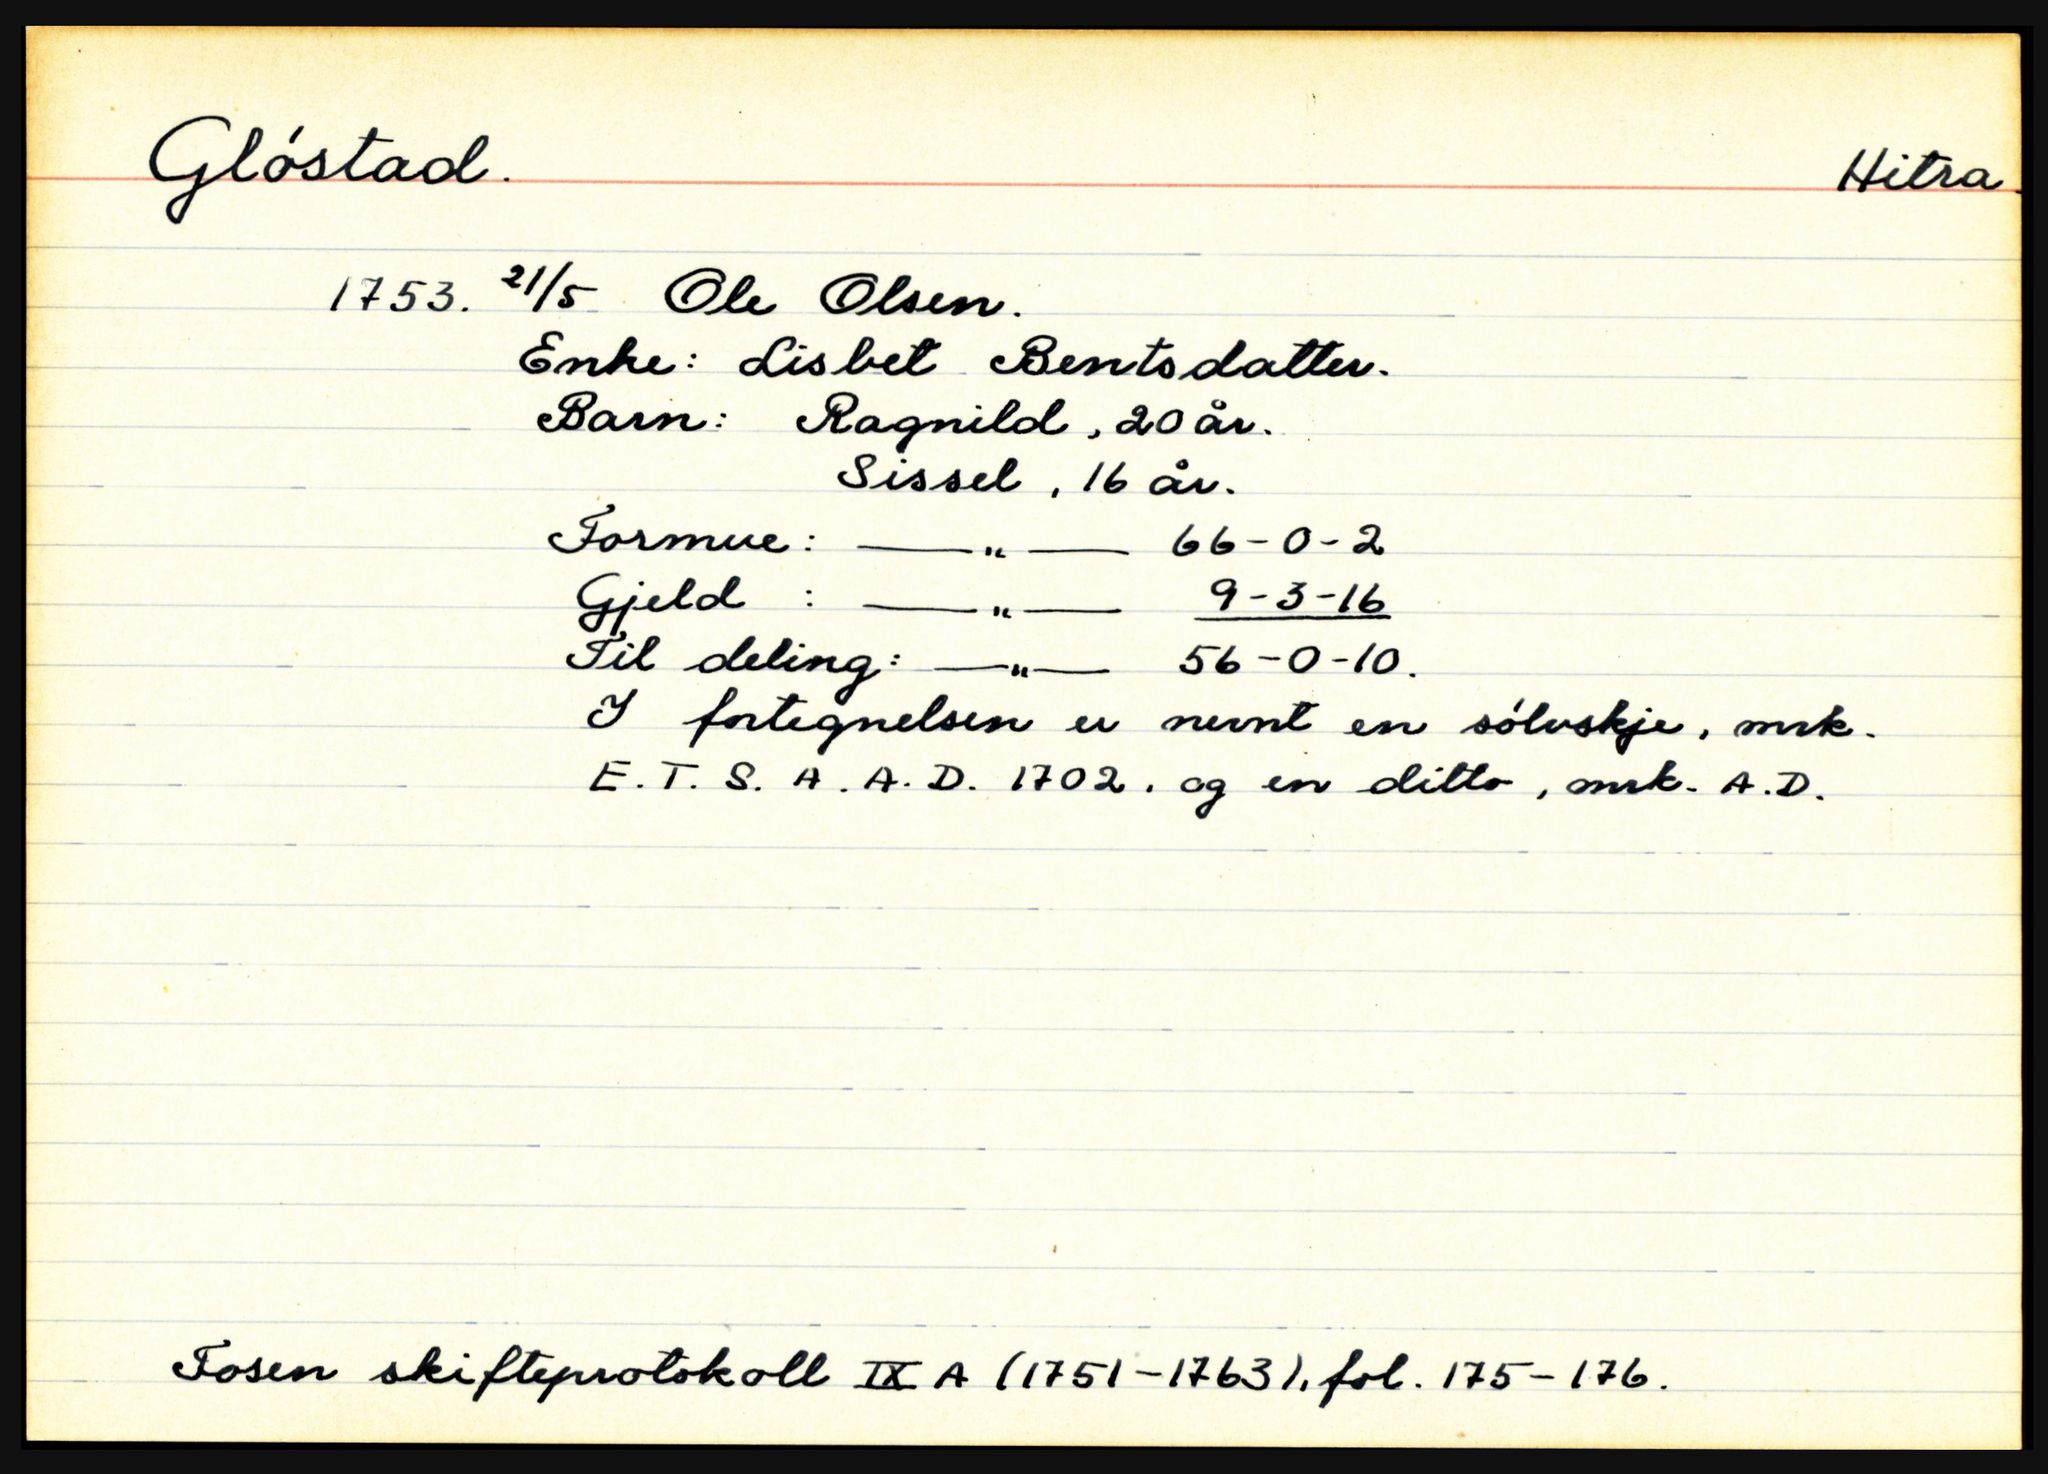 Glóstad.
Hitra.
1753. 21/5 Ole Olsen.
Enke: Lisbet Bentsdatter.
Barn: Ragnild, 20 år.
Sissel, 16 år.
Formue: —„— 66-0-2
Gjeld : —„— 9-3-16
Til deling: —„— 56-0-10.
I fortegnelsen er nevnt en sólvskje, mrk.
E. T. S. A. A. D. 1702. og en ditto, mrk. A.D.
Fosen skifteprotokoll IX A (1751-1763), fol. 175-176.